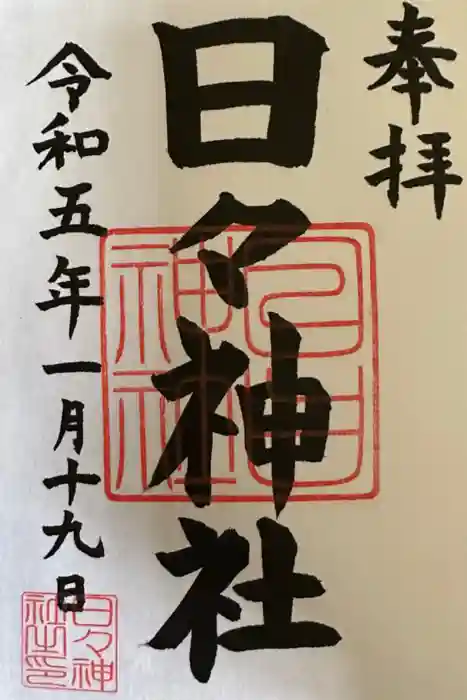 奉拝
日々神社
令和五年一月十九日
日々神
社之印